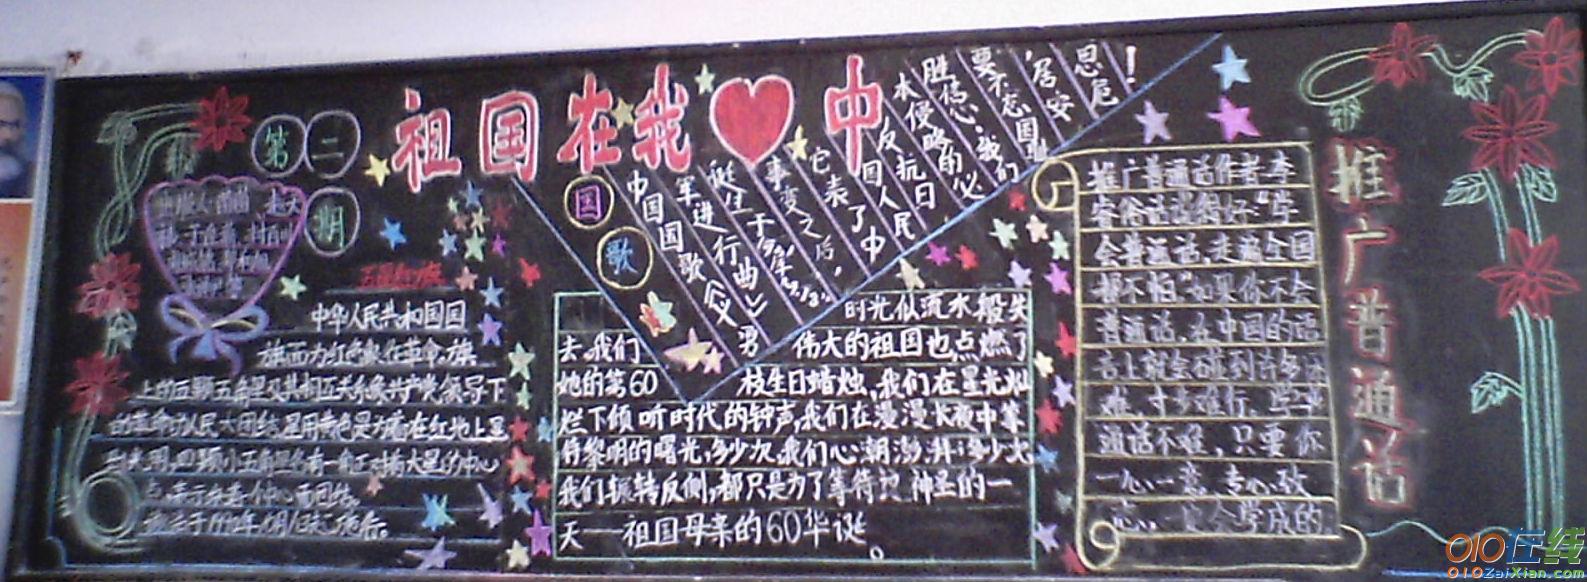 祖国在我 中
第二期
国歌
中国国歌《义勇
军进行曲》
诞生于
事变之后，
它表了中
国人民
反抗日
本侵略的必
胜信心，我们
要不忘国
，居安
思危！
五星红旗
中华人民共和国国
旗面为红色象征革命,旗
上的五颗五角星及其相互关系象共产党领导下
的革命的人民大团结.星用黄色是为着在红地上显
四颗小五角星各有一角正对着大星的中心
点,表示 中心而团结。
时光似流水般失
去,我们 伟大的祖国也点燃了
她的第60 枝生日蜡烛,我们在星光灿
烂下倾听时代的钟声,我们在漫漫长夜中等
待黎明的曙光,多少次,我们心潮澎湃,多少次
我们辗转反侧,都只是为了等待 神圣的一
天——祖国母亲的60华诞。
推广普通话
推广普通话作者:李
俗话说得好:“学
会普通话,走遍全国
都不怕"如果你不会
普通话,在中国的语
言上就会碰到许多困
难,寸步难行。学普
通话不难,只要你
一心一意,专心致
志,一定会学成的.
010在线
010ZaiXian.com